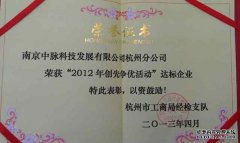 荣誉证书
南京中脉科技发展有限公司杭州分公司
荣获“2012年创先争优活动”达标企业
特此表彰，以资鼓励！
杭州市工商局经检支队
二〇一三年四月